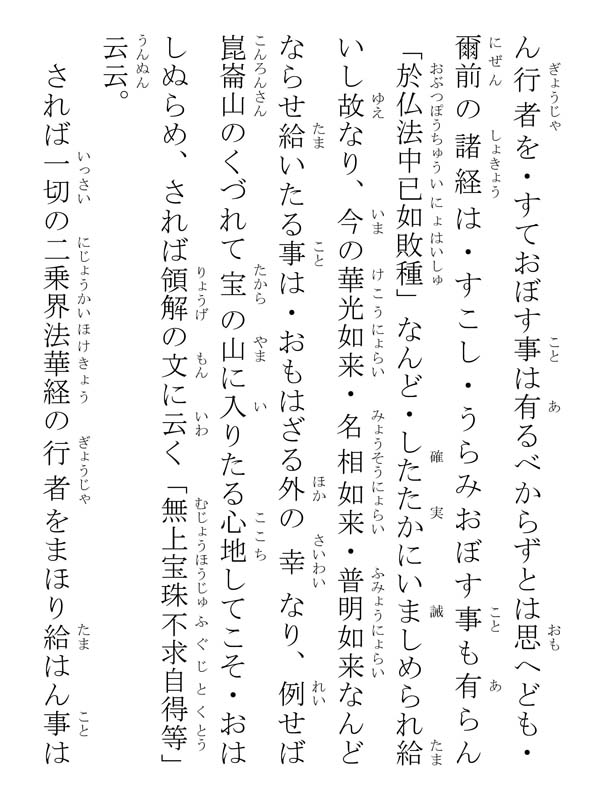 ん行者を・すておぼす事は有るべからずとは思へども・
爾前の諸経は・すこし・うらみおぼす事も有らん
「於仏法中已如敗種」なんど・したたかにいましめられ給
いし故なり、今の華光如来・名相如来・普明如来なんど
ならせ給いたる事は・おもはざる外の幸なり、例せば
崑崙山のくづれて宝の山に入りたる心地してこそ・おは
しぬらめ、されば領解の文に云く「無上宝珠不求自得等」
云云。
されば一切の二乗界法華経の行者をまほり給はん事は